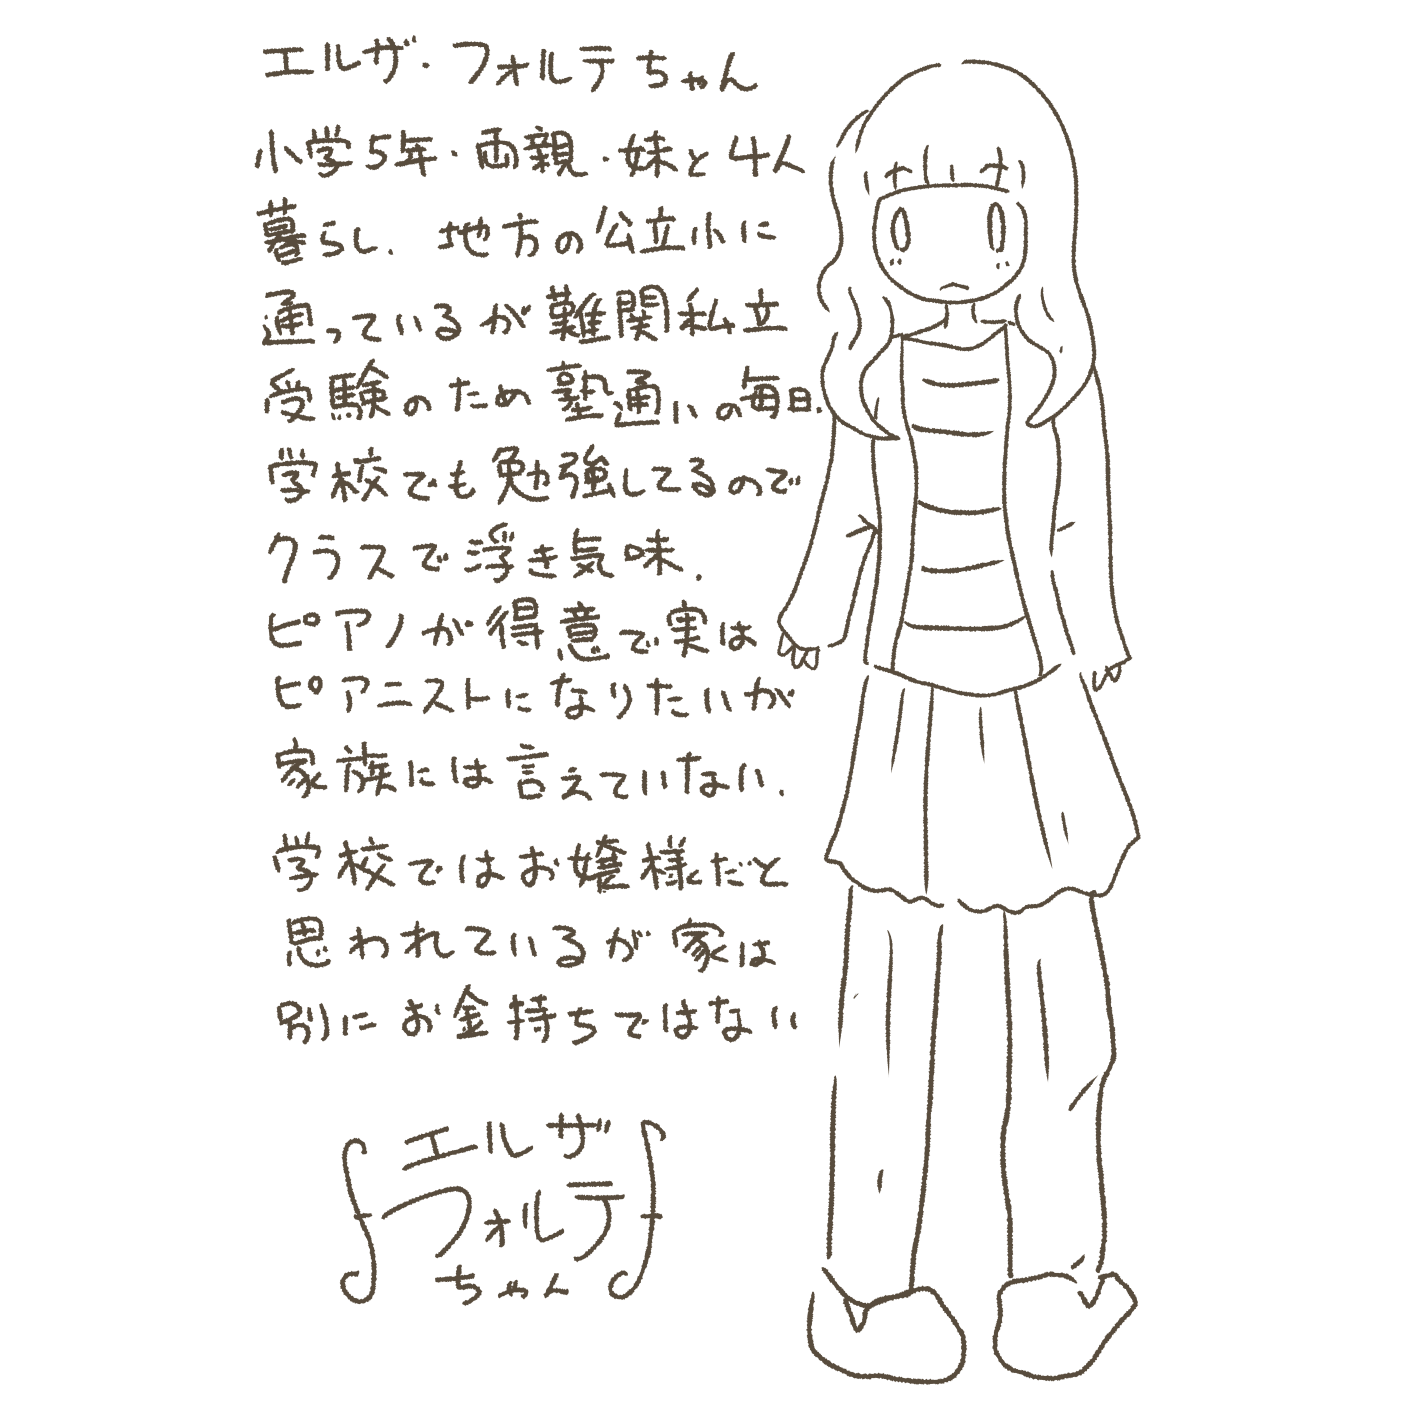 エルザ・フォルテちゃん
小学5年・両親・妹と4人
暮らし. 地方の公立小に
通っているが難関私立
受験のため塾通いの毎日.
学校でも勉強してるので
クラスで浮き気味.
ピアノが得意で実は
ピアニストになりたいが
家族には言えていない.
学校ではお嬢様だと
思われているが家は
別にお金持ちではない
エルザ
フォルテ
ちゃん